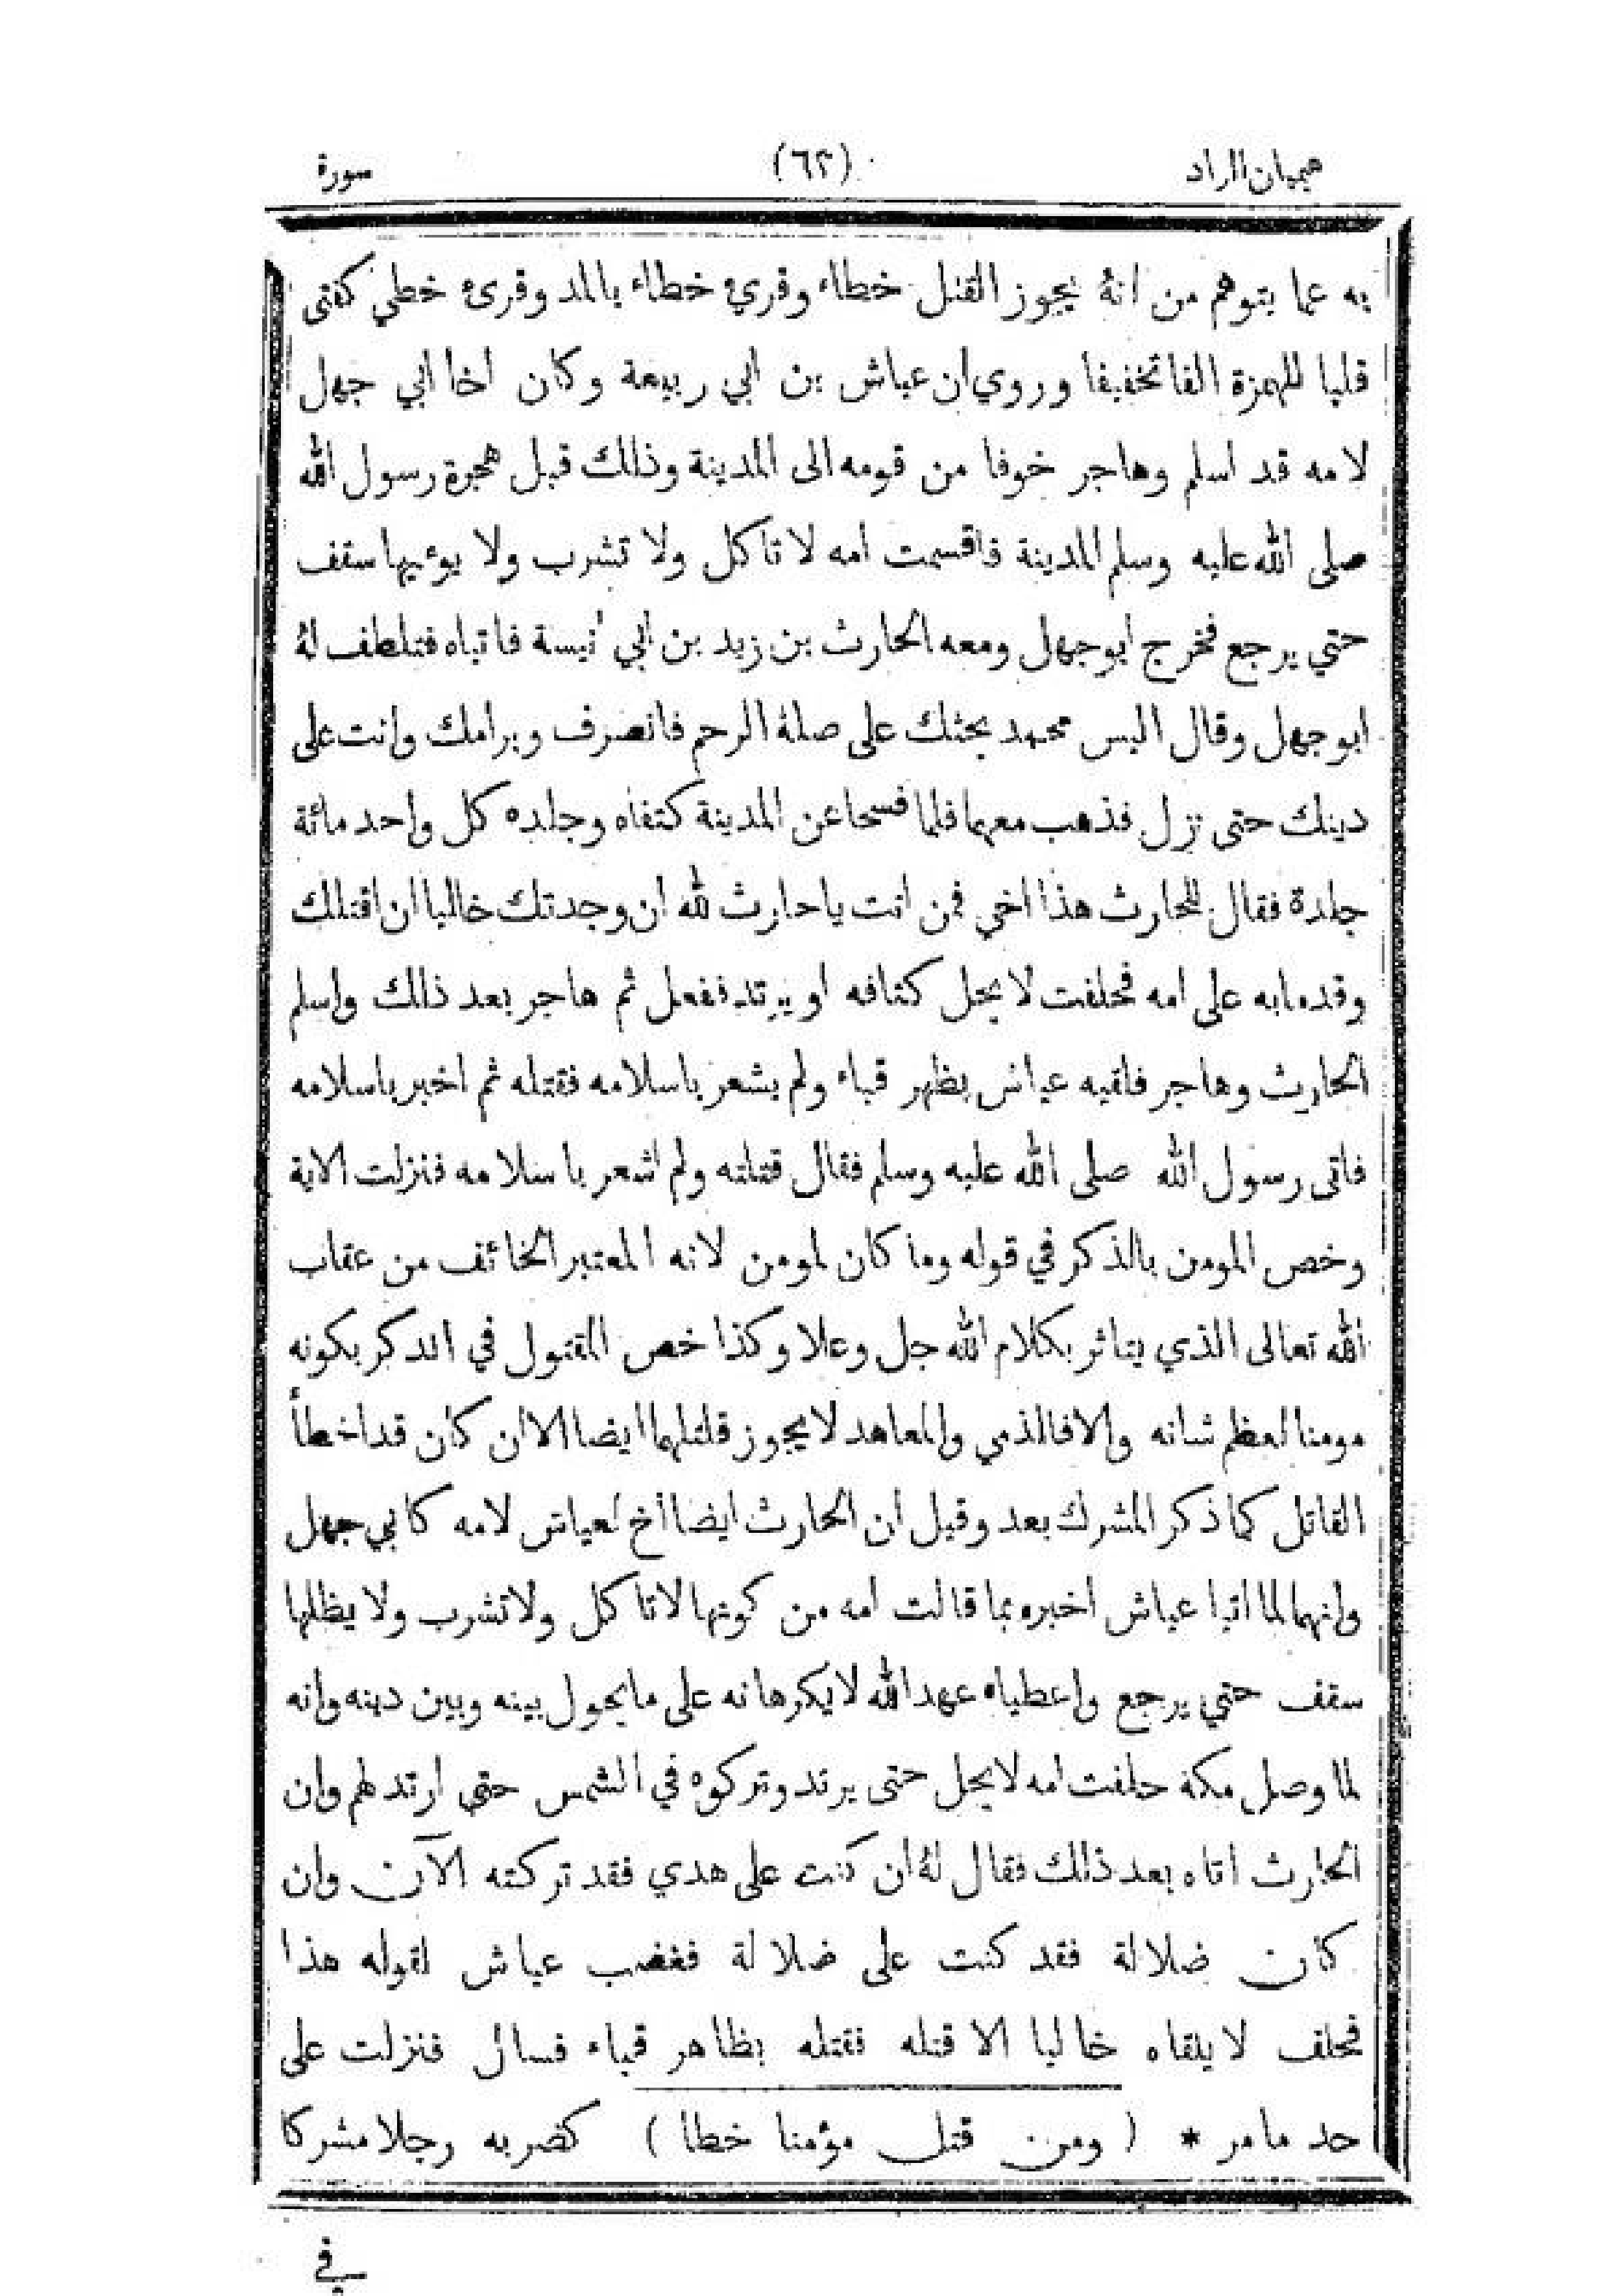 هميان الزاد (٦٢) سورة
به عما يتوهم من انه يجوز القتل خطاء وقريء خطاء بالمد وقرىء خطي كفتى
قلبا للهمزة الفا تخفيفا وروي ان عياش بن ابي ربيعة وكان اخا ابي جهل
لامه قد اسلم وهاجر خوفا من قومه الى المدينة وذلك قبل هجرة رسول الله
صلى الله عليه وسلم المدينة فاقسمت امه لا تاكل ولا تشرب ولا يوءيها سقف
حتي يرجع فخرج ابو جهل ومعه الحارث بن زيد بن ابي انيسة فاتياه فتلطف له
ابو جهل وقال اليس محمد يحثك على صلة الرحم فانصرف وبر امك وانت على
دينك حتى نزل فذهب معهما فلما فسحا عن المدينة كتفاه وجلده كل واحد مائة
جلدة فقال للحارث هذا اخي فمن انت يا حارث لله ان وجدتك خاليا ان اقتلك
وقدما به على امه فحلفت لا يحل كتافه او يرتد ففعل ثم هاجر بعد ذلك واسلم
الحارث وهاجر فلقيه عياش بظهر قباء ولم يشعر باسلامه فقتله ثم اخبر باسلامه
فاتى رسول الله صلى الله عليه وسلم فقال قتلته ولم اشعر باسلامه فنزلت الاية
وخص المومن بالذكر في قوله وما كان لمومن لانه المعتبر الخائف من عقاب
الله تعالى الذي يتاثر بكلام الله جل وعلا وكذا خص المقتول في الذكر بكونه
مومنا لعظم شانه والا فالذمي والمعاهد لا يجوز قتلهما ايضا الا ان كان قد اخطأ
القاتل كما ذكر المشرك بعد وقيل ان الحارث ايضا أخ لعياش لامه كابي جهل
وانهما لما اتيا عياش اخبره بما قالت امه من كونها لا تاكل ولا تشرب ولا يظلها
سقف حتي يرجع واعطياه عهد الله لا يكرهانه على ما يحول بينه وبين دينه وانه
لما وصل مكة حلفت امه لا يحل حتى يرتد وتركوه في الشمس حتي ارتد لهم وان
الحارث اتاه بعد ذلك فقال له ان كنت على هدي فقد تركته الآن وان
كان ضلالة فقد كنت على ضلالة فغضب عياش لقوله هذا
فحلف لا يلقاه خاليا الا قتله فقتله بظاهر قباء فسال فنزلت على
حد ما مر * ( ومن قتل مؤمنا خطا ) كضربه رجلا مشركا
في